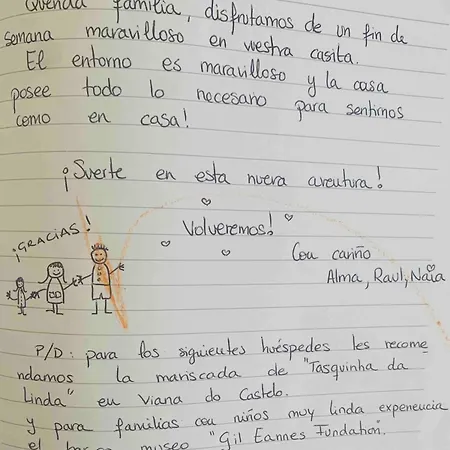 Querida familia, disfrutamos de un fin de
semana maravilloso en vuestra casita.
El entorno es maravilloso y la casa
posee todo lo necesario para sentirnos
como en casa!
¡Suerte en esta nueva aventura!
Volveremos!
¡GRACIAS!
Con cariño
Alma, Raul, Naia
P/D: para los siguientes huéspedes les recome
ndamos la mariscada de "Tasquinha da
Linda" en Viana do Castelo.
y para familias con niños muy linda experiencia
el museo "Gil Eannes Fundation.